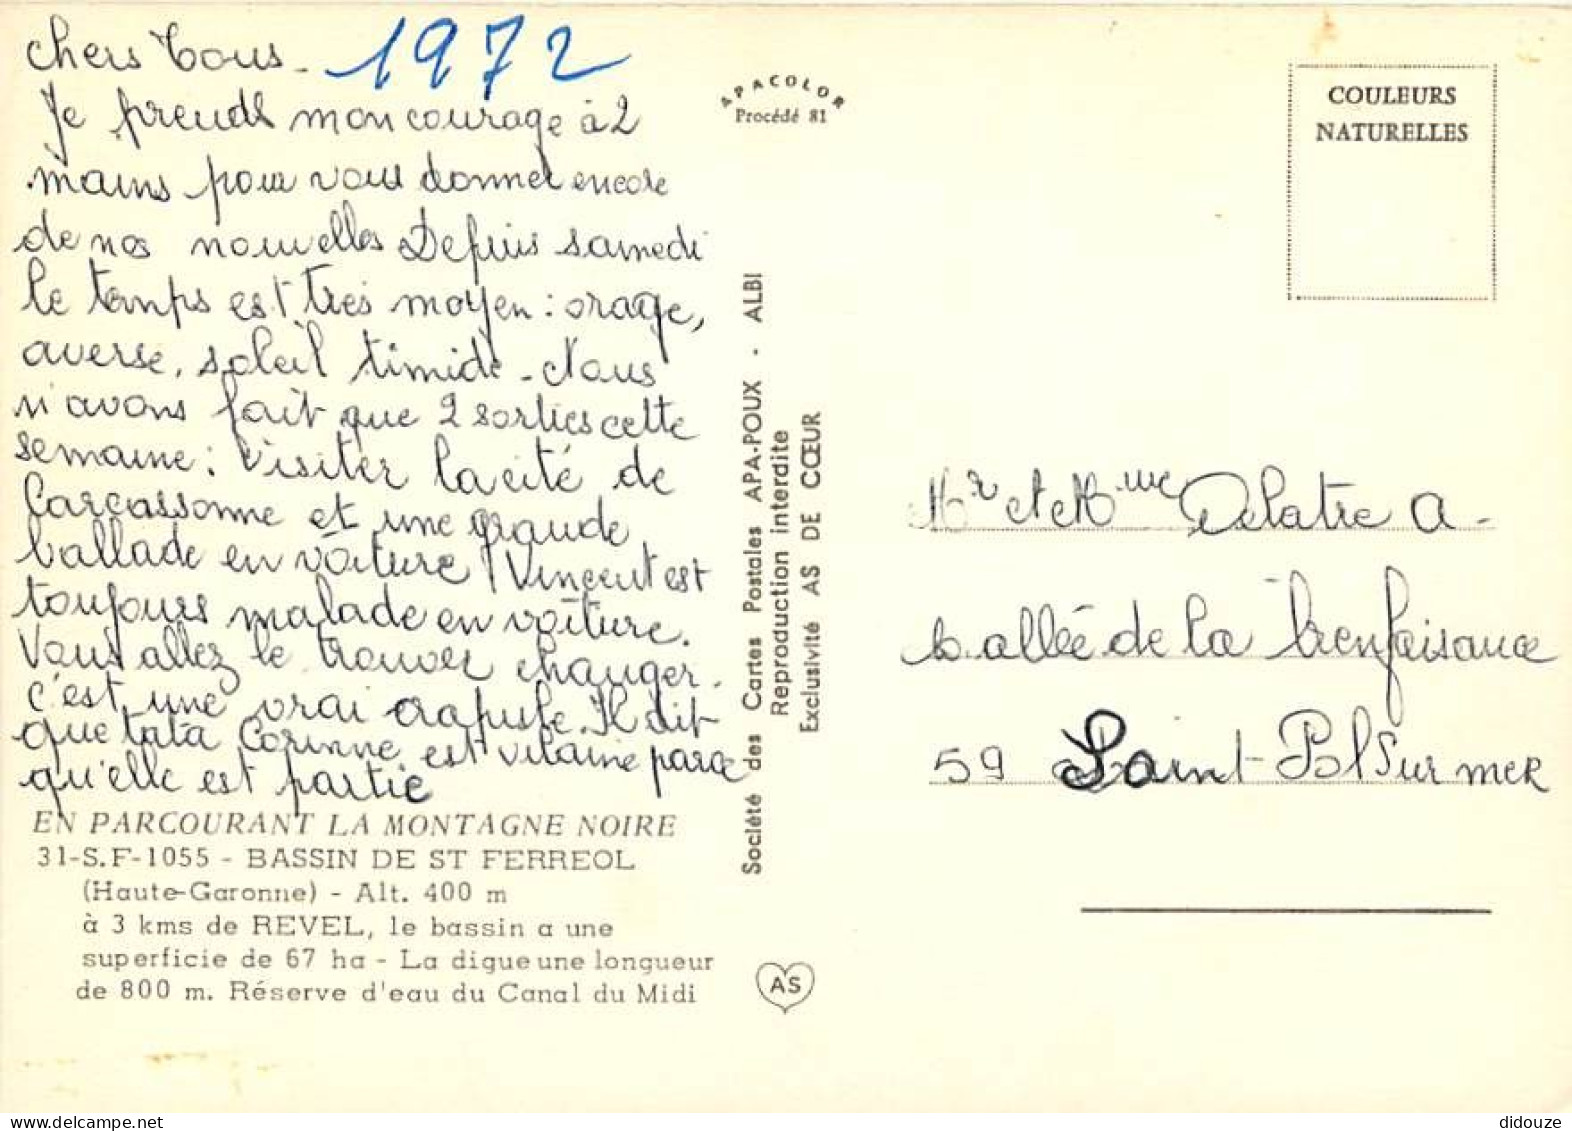 Chers Tous - 1972
Je prends mon courage à 2
mains pour vous donner encore
de nos nouvelles Depuis samedi
le temps est très moyen : orage,
averse, soleil timide - Nous
n'avons fait que 2 sorties cette
semaine : visiter la cité de
Carcassonne et une grande
ballade en voiture Vincent est
toujours malade en voiture.
Vous allez le trouver changer.
c'est une vrai crapule. Il dit
que tata Corinne est vilaine parce
qu'elle est partie
EN PARCOURANT LA MONTAGNE NOIRE
31-S.F-1055 - BASSIN DE ST FERREOL
(Haute-Garonne) - Alt. 400 m
à 3 kms de REVEL, le bassin a une
superficie de 67 ha - La digue une longueur
de 800 m. Réserve d'eau du Canal du Midi
APACOLOR
Procédé 81
Société des Cartes Postales APA-POUX - ALBI
Reproduction interdite
Exclusivité AS DE CŒUR
AS
COULEURS
NATURELLES
Mr et Mme Delatre A -
allée de la bienfaisance
59 Saint-Pol Sur mer
didouze